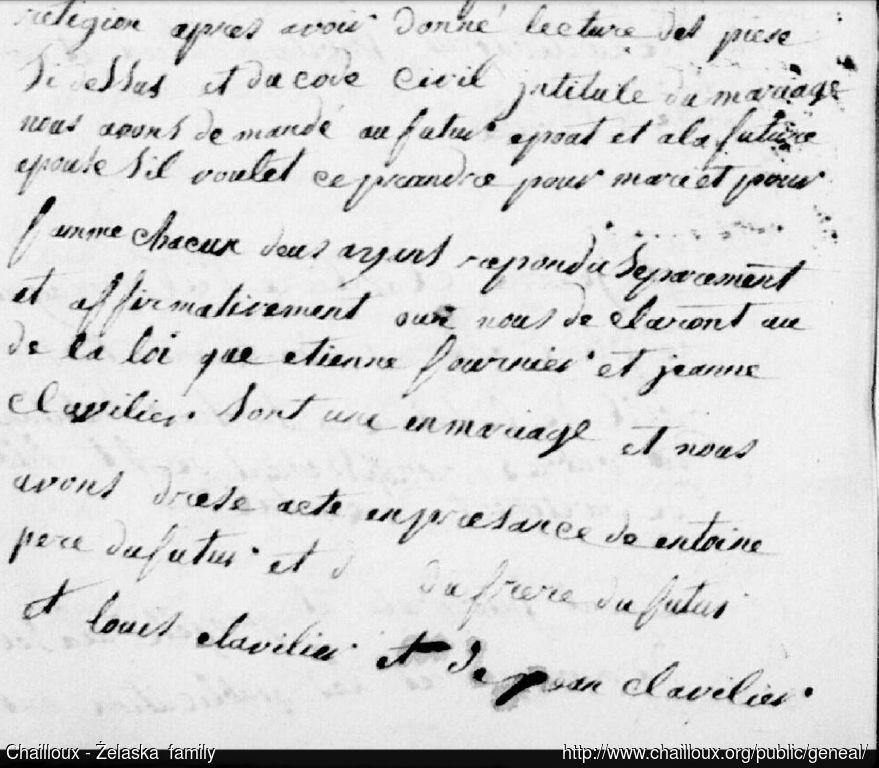 religion apres avoir donné lecture des piese
si dessus et du code civil jntitule du mariage
nous avons de mandé au futur epoas et a la future
epouse sil voulet ce prandre pour mari et pour
famme chacun deus ayant repondu separement
et affirmativement que nous de claront au
de la loi que etienne fournier et jeanne
clavilier sont uni en mariage et nous
avons drese acte en presance de entoine
pere du futur et d du frere du futur
et louis clavilier et de jean clavilier
Chailloux - Żelaska family
http://www.chailloux.org/public/geneal/